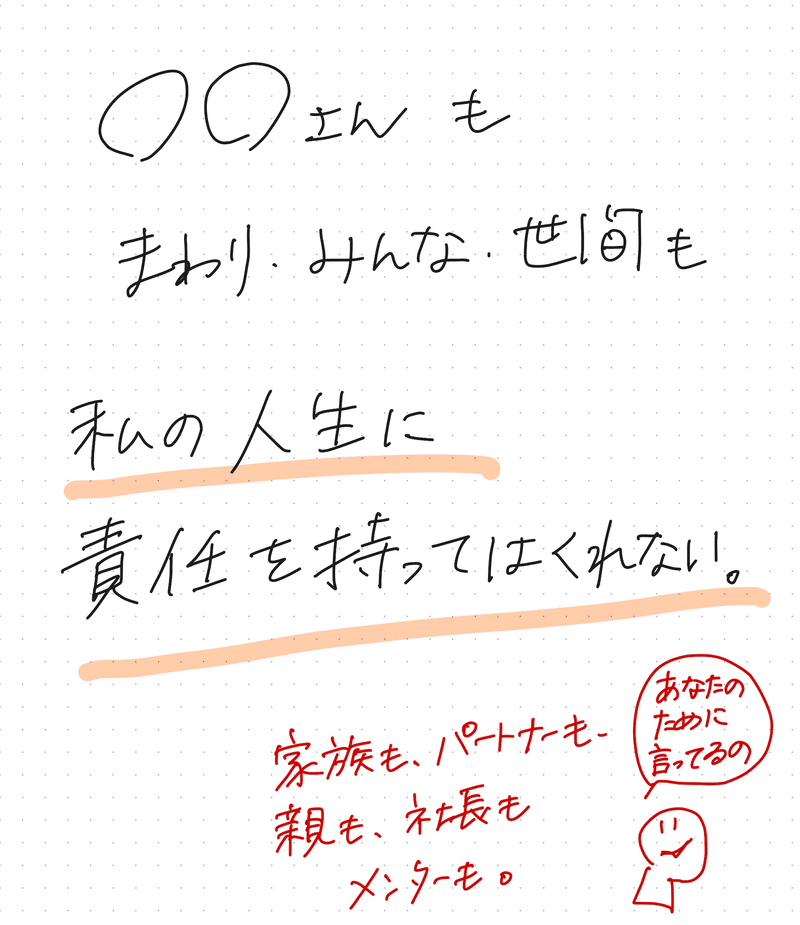 〇〇さんも
まわり・みんな・世間も
私の人生に
責任を持ってはくれない。
家族も、パートナーも、
親も、社長も
メンターも。
あなたの
ために
言ってるの